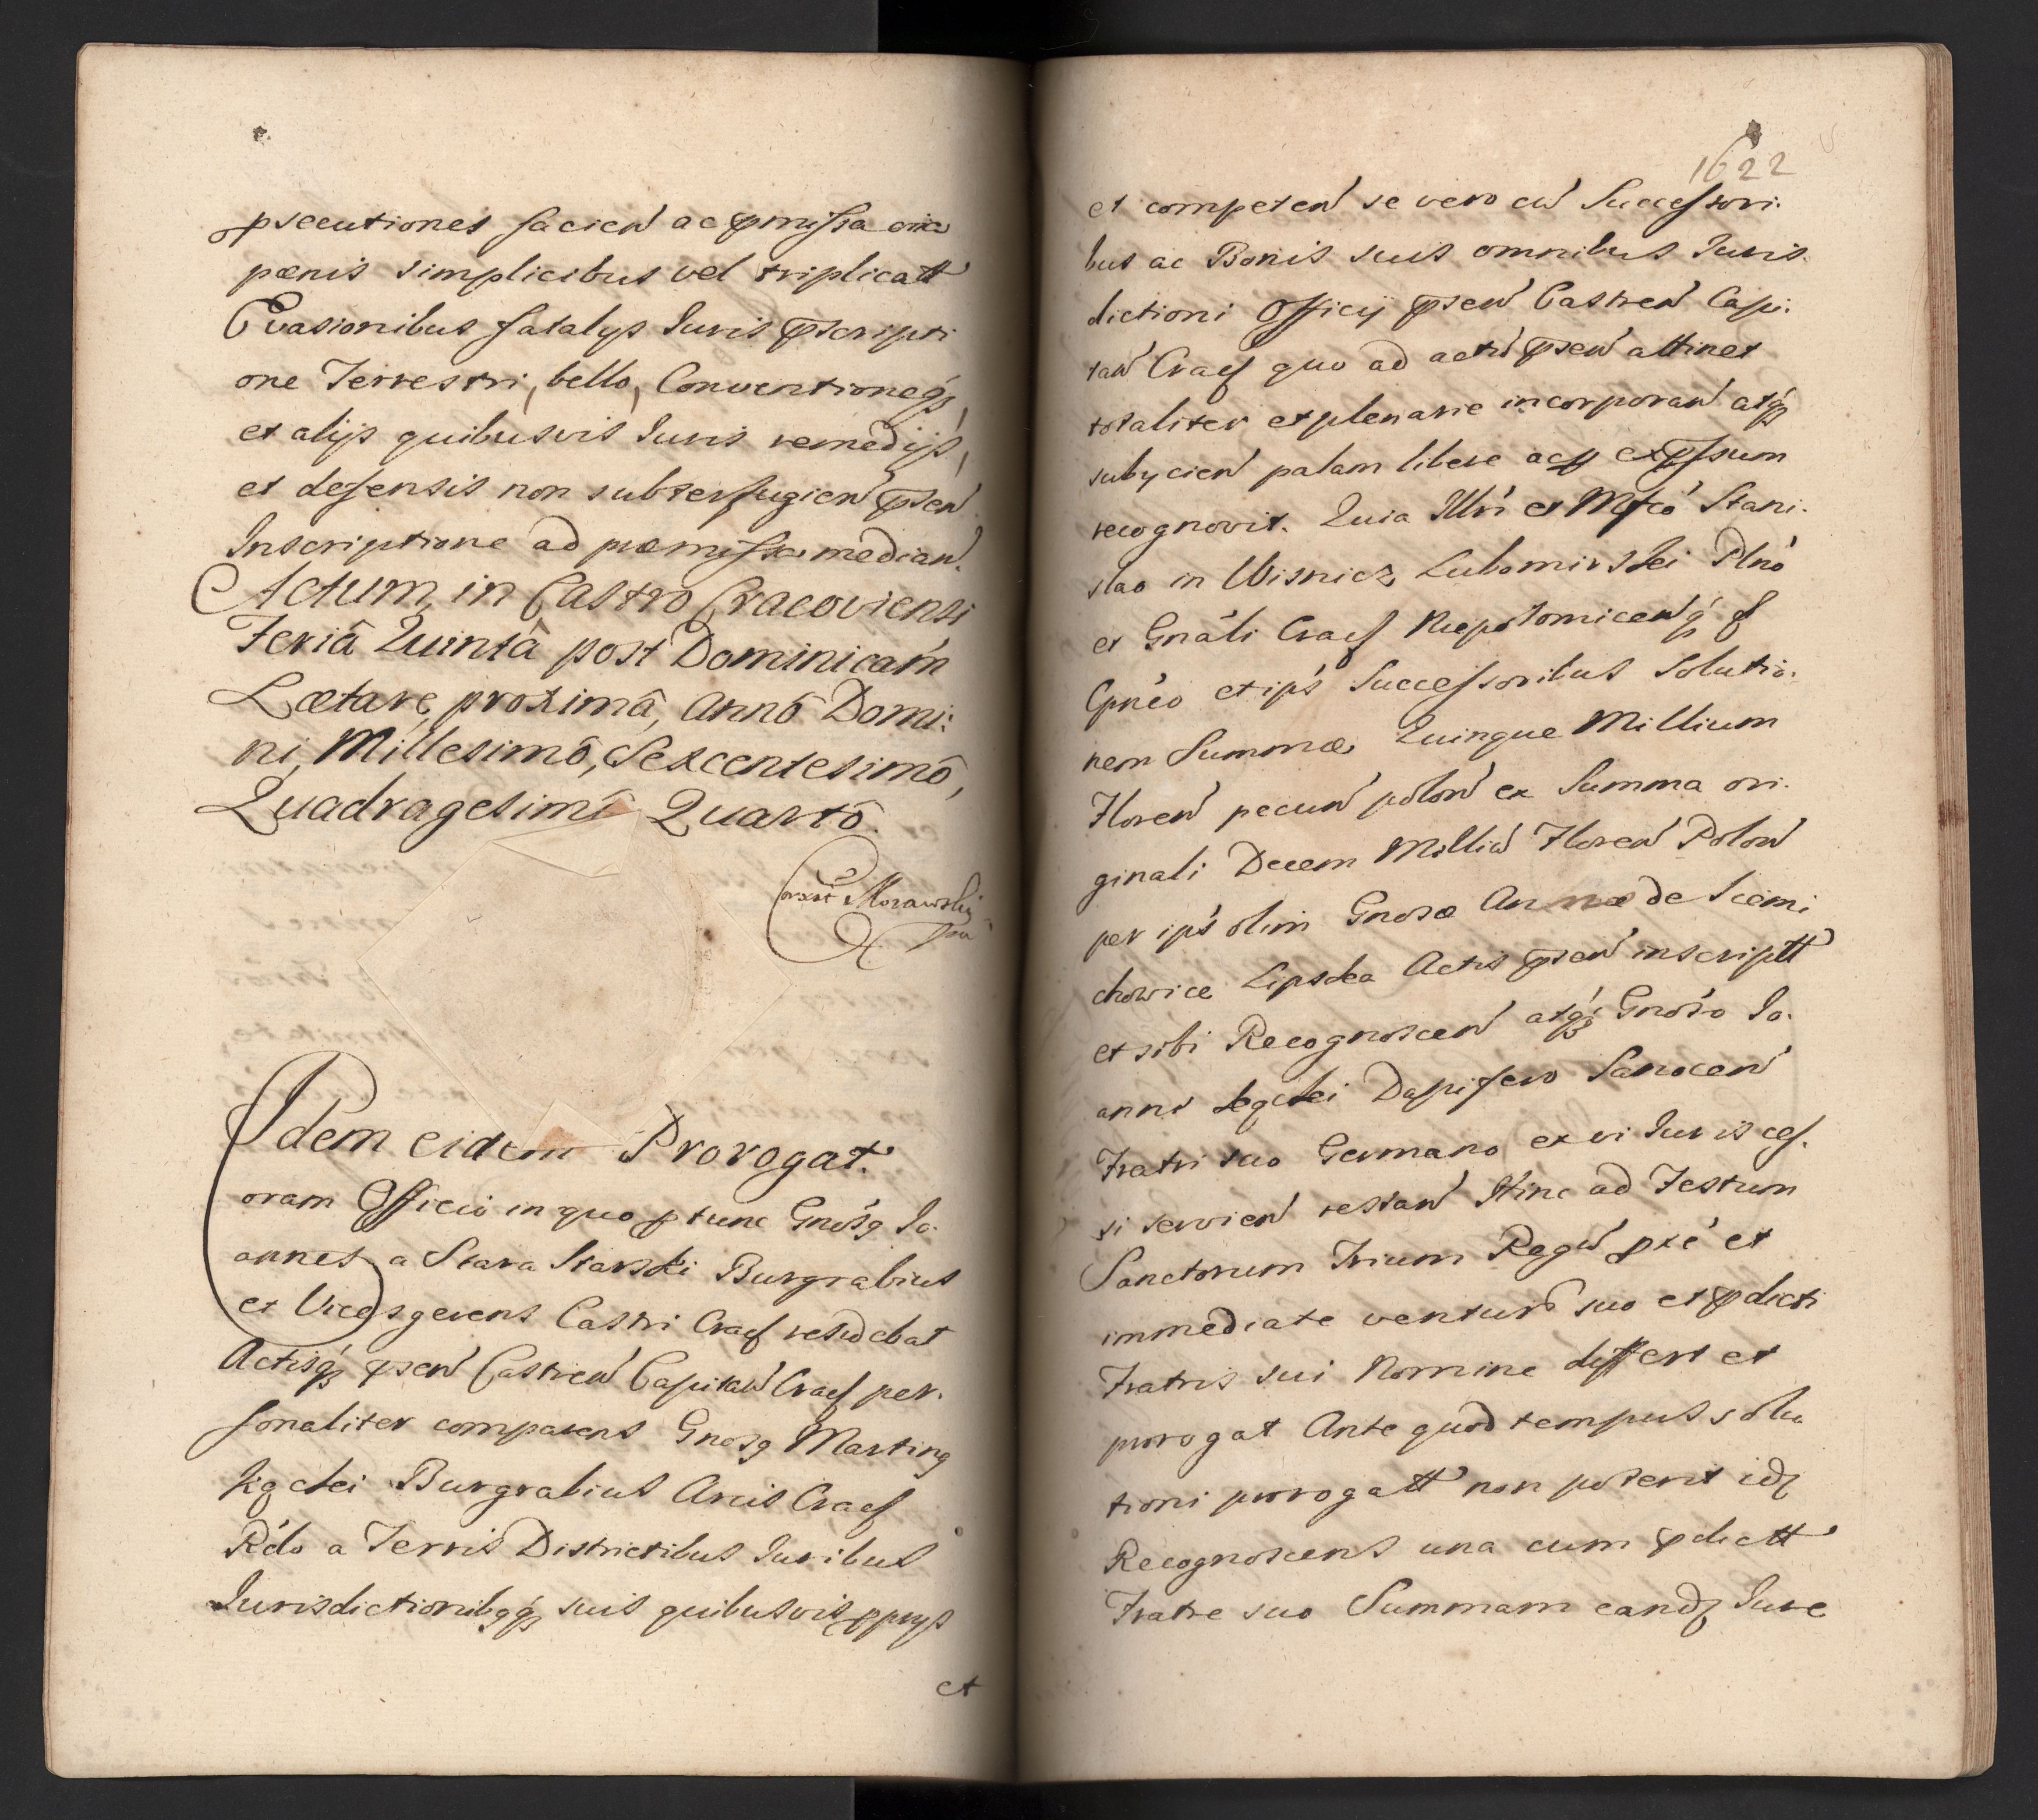 psecutiones facień ac pmissa oia
pœnis simplicibus vel triplicatt
Evasionibus fatalijs Iuris pscripti
one Terrestri, bello, Conventioneq́
et alijs quibusvis Iuris remedijs,
et defensis non subterfugień pseń
Inscriptione ad præmissa mediań.
Actum in Castro Cracoviensi
Feriâ Quintâ post Dominicam
Lætare, proximâ, Annô Domi:
ni, Millesimô, Sexcentesimô,
Quadragesimô Quartô.
Morawski
Idem eidem Prorogat.
oram Officio in quo ptunc Gnosq Io.
annes a Stara Starski Burgrabius
et Vicesgerens Castri Cracf residebat
Actisq́ pseń Castreń Capitań Cracf per.
sonaliter comparens Gnosq Martinq
Burgrabius Arcis Cracf
Rćdo a Terris Districtibus Iuribus
Iurisdictionibqq́ suis quibusvis pprijs
et
1622
et competeń se vero cú Successori.
bus ac Bonis suis omnibus Iuris.
dictioni Officij pseń Castreń Capi.
tań Cracf quo ad actú pseń attinet
totaliter et plenarie incorporań atq́
subijcień palam libere acp expssum
recognovit. Quia Illri et Mfcó Stani.
slao in Wisnicz Lubomirski Plnó
et Gnáli Cracf Niepolomiceńq́ &
Cpnéo et ips Successoribus solutio.
nem Summæ Quinque Millium
Floreń pecuń poloń ex Summa ori.
ginali Decem Milliú Floreń Poloń
per ips olim Gnosæ Annæ de Sciemi
chowice Lipska Actis pseń inscriptt
et sibi Recognosceń atq́ Gnoso Io.
anni Dapifero Sanoceń
Fratri suo Germano ex vi Iuris ces.
si servień restań Hinc ad Festum
Sanctorum Trium Regú pxé et
immediate venturú suo et pdicti
Fratris sui Nomine differt et
prorogat Ante quod tempus solu
tioni prorogatt non poterit idq
Recognoscens una cum pdictt
Fratre suo Summam eandq Iure